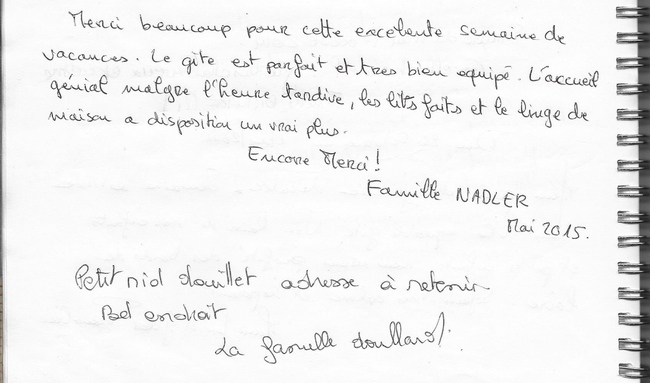 Merci beaucoup pour cette excellente semaine de
vacances. Le gite est parfait et tres bien equipé. L'accueil
génial malgre l'heure tardive, les lits faits et le linge de
maison a disposition un vrai plus.
Encore Merci!
Famille NADLER
Mai 2015.
Petit nid douillet adresse à retenir
Bel endroit
La famille